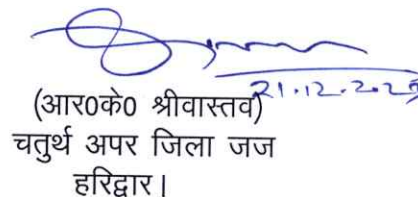 21.12.202
(आर0के0 श्रीवास्तव)
चतुर्थ अपर जिला जज
हरिद्वार।